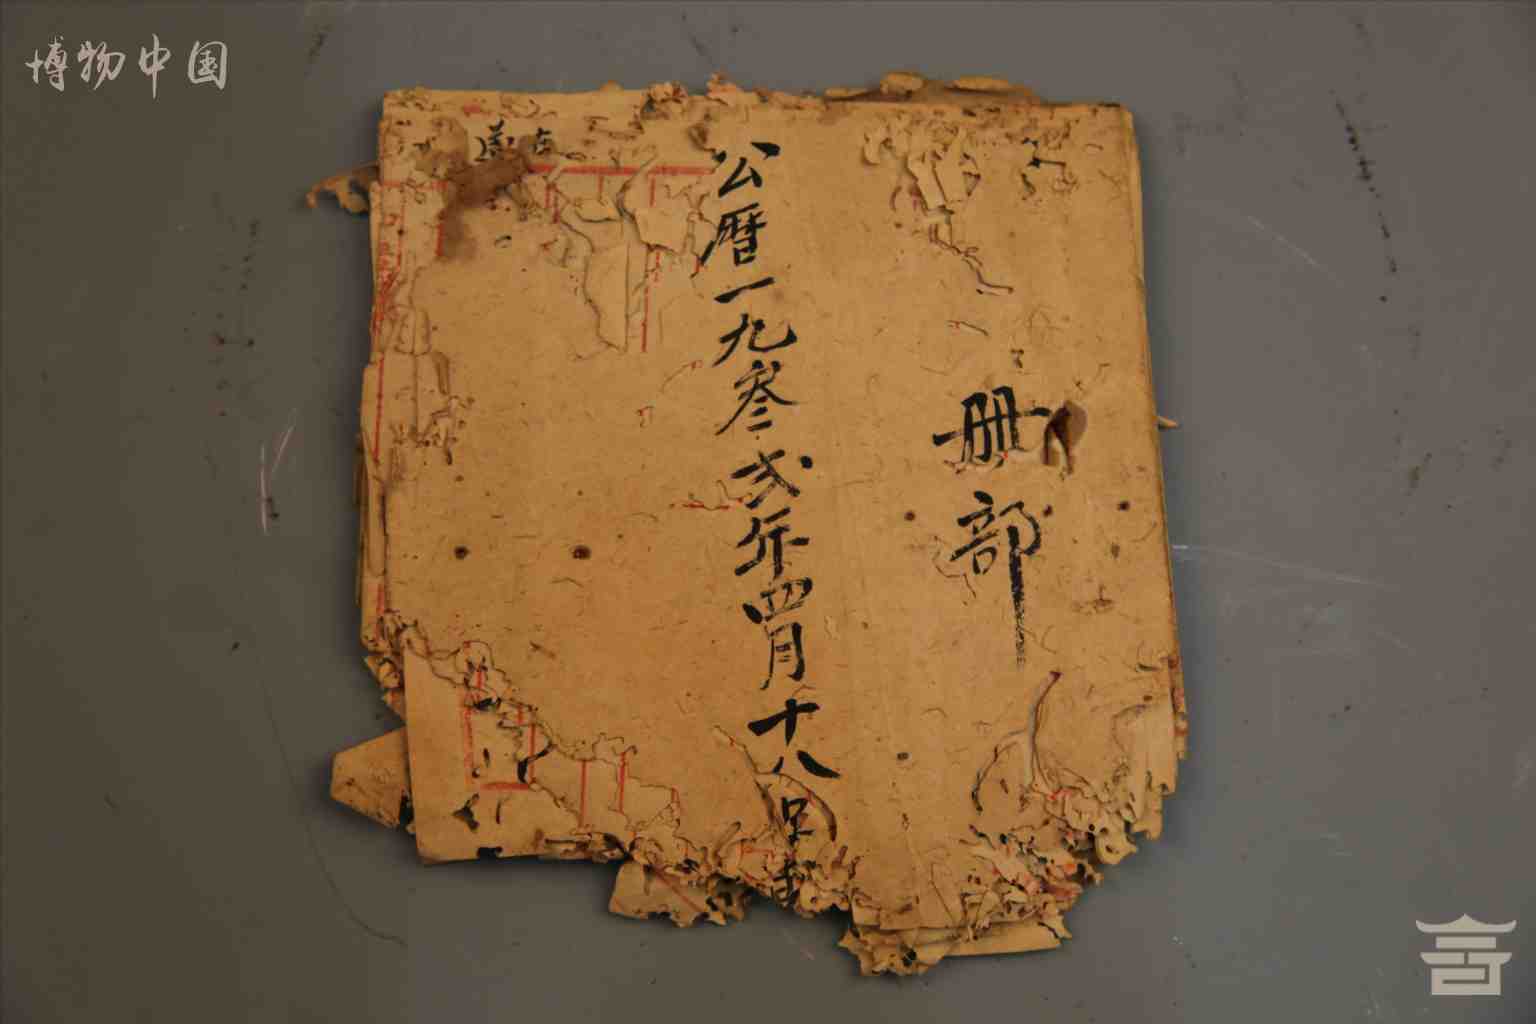 博物中国
册部
公曆一九叁弍年四月十八日